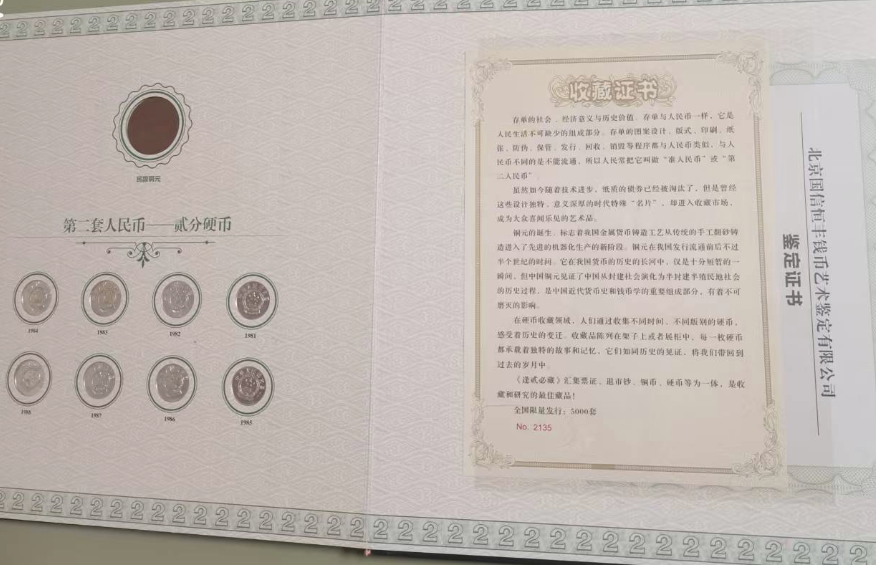 民国铜元
第二套人民币——贰分硬币
1984
1983
1982
1981
1988
1987
1986
1985
收藏证书
存单的社会、经济意义与历史价值。存单与人民币一样，它是
人民生活不可缺少的组成部分。存单的图案设计、版式、印刷、纸
张、防伪、保管、发行、回收、销毁等程序都与人民币类似。与人
民币不同的是不能流通，所以人民常把它叫做“准人民币”或“第
二人民币”。
虽然如今随着技术进步，纸质的债券已经被淘汰了，但是曾经
这些设计独特、意义深厚的时代特殊“名片”，却进入收藏市场，
成为大众喜闻乐见的艺术品。
铜元的诞生，标志着我国金属货币铸造工艺从传统的手工翻砂铸
造进入了先进的机器化生产的新阶段。铜元在我国发行流通前后不过
半个世纪的时间，它在我国货币的历史的长河中，仅是十分短暂的一
瞬间，但中国铜元见证了中国从封建社会演化为半封建半殖民地社会
的历史过程，是中国近代货币史和钱币学的重要组成部分，有着不可
磨灭的影响。
在硬币收藏领域，人们通过收集不同时间、不同版别的硬币，
感受着历史的变迁。收藏品陈列在架子上或者展柜中，每一枚硬币
都承载着独特的故事和记忆，它们如同历史的见证，将我们带回到
过去的岁月中。
《逢贰必藏》汇集票证、退市钞、铜币、硬币等为一体，是收
藏和研究的最佳藏品！
全国限量发行：5000套
No. 2135
北京国信恒丰钱币艺术鉴定有限公司
鉴定证书